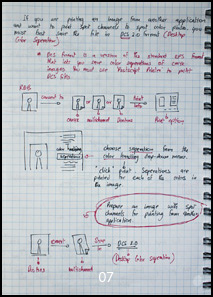 If you are printing an image from another application
and want to print spot channels to spot color plates, you
must first save the file in DCS 2.0 format (Desktop
Color Separation)
* DCS format is a version of the standard EPS format
that lets you save color separations of CMYK
images. You must use PostScript Printer to print
DCS files.
RGB
convert to
or
or
Print
CMYK multichannel Duotone
color handling
separations
choose separations from the
color handling drop-down menu.
click print. Separations are
printed for each of the colors in
the image.
Prepare an image with spot
channels for printing from another
application.
Duotone
convert
multichannel
Save
in
DCS 2.0
(Desktop Color Separation)
07